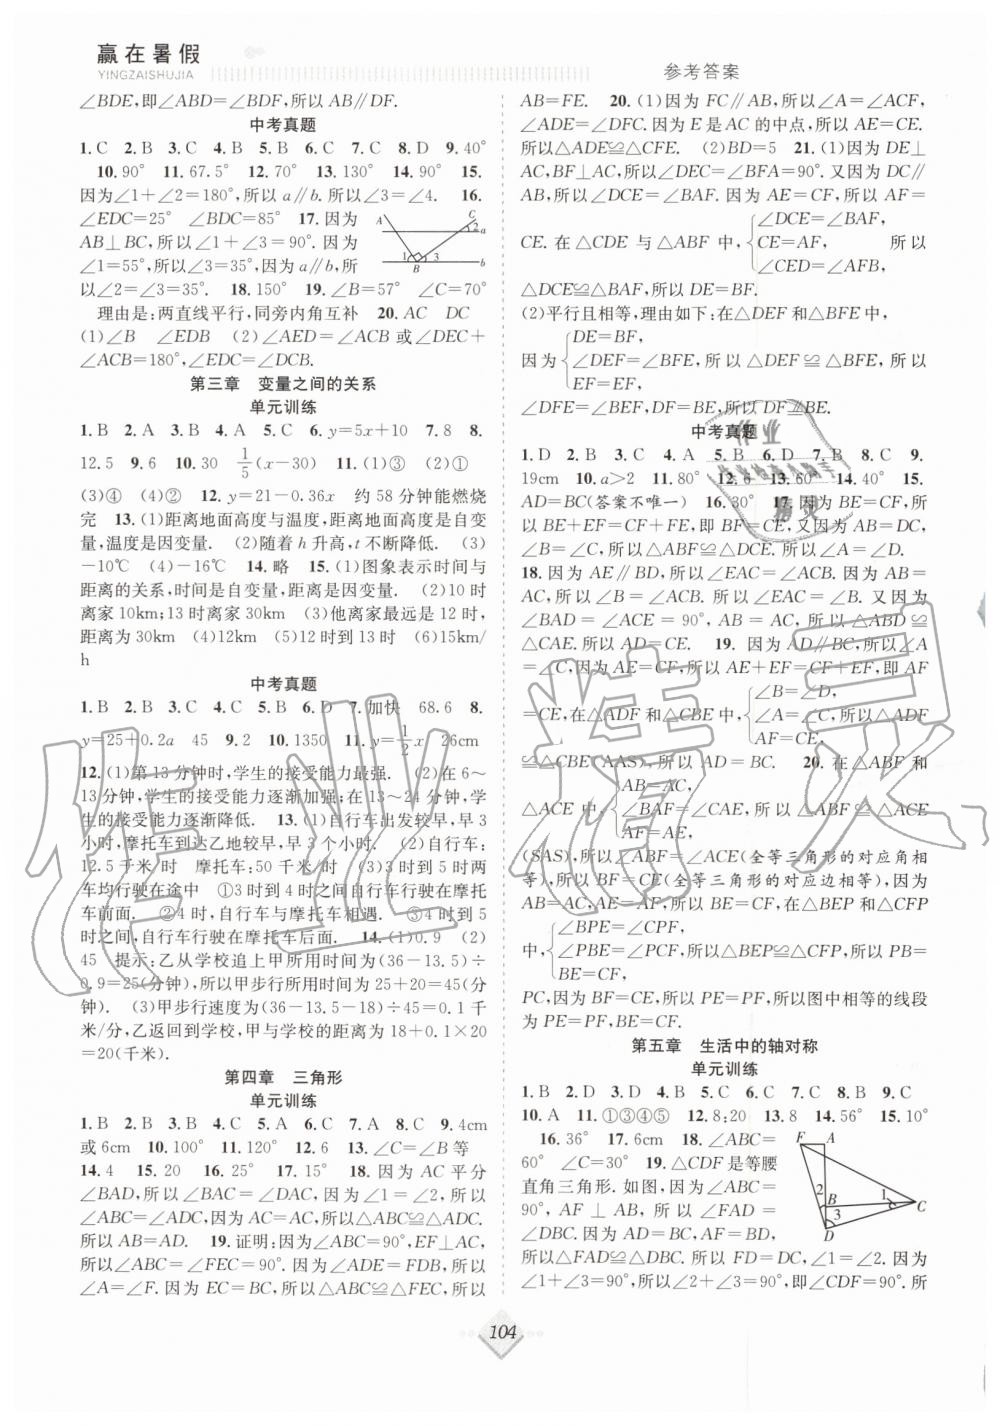 赢在暑假
YINGZAISHUJIA
参考答案
∠BDE,即∠ABD=∠BDF,所以 AB∥DF.
中考真题
1.C 2.B 3.C 4.B 5.B 6.C 7.C 8.D 9.40°
10.90° 11.67.5° 12.70° 13.130° 14.90° 15.
因为∠1+∠2=180°,所以 a∥b.所以∠3=∠4. 16.
∠EDC=25° ∠BDC=85° 17.因为
AB⊥BC,所以∠1+∠3=90°.因为
∠1=55°,所以∠3=35°,因为 a∥b,所
以∠2=∠3=35°. 18.150° 19.∠B=57° ∠C=70°
理由是:两直线平行,同旁内角互补 20.AC DC
(1)∠B ∠EDB (2)∠AED=∠ACB 或∠DEC+
∠ACB=180°,∠EDC=∠DCB.
A
C
2
a
1
3
B
b
第三章 变量之间的关系
单元训练
1.B 2.A 3.B 4.A 5.C 6.y=5x+10 7.8 8.
12.5 9.6 10.30 1/5(x-30) 11.(1)③ (2)①
(3)④ (4)② 12.y=21-0.36x 约 58 分钟能燃烧
完 13.(1)距离地面高度与温度,距离地面高度是自变
量,温度是因变量. (2)随着 h 升高,t 不断降低. (3)
-10℃ (4)-16℃ 14.略 15.(1)图象表示时间与
距离的关系,时间是自变量,距离是因变量. (2)10 时
离家 10km;13 时离家 30km (3)他离家最远是 12 时,
距离为 30km (4)12km (5)12 时到 13 时 (6)15km/
h
中考真题
1.B 2.B 3.C 4.C 5.D 6.D 7.加快 68.6 8.
y=25+0.2a 45 9.2 10.1350 11.y=1/2x 26cm
12.(1)第 13 分钟时,学生的接受能力最强. (2)在 6~
13 分钟,学生的接受能力逐渐加强;在 13~24 分钟,学
生的接受能力逐渐降低. 13.(1)自行车出发较早,早 3
小时,摩托车到达乙地较早,早 3 个小时. (2)自行车:
12.5 千米/时 摩托车:50 千米/时 (3)3 时到 5 时两
车均行驶在途中 ①3 时到 4 时之间自行车行驶在摩托
车前面. ②4 时,自行车与摩托车相遇. ③4 时到 5
时之间,自行车行驶在摩托车后面. 14.(1)0.9 (2)
45 提示:乙从学校追上甲所用的时间为(36-13.5)÷
0.9=25(分钟),所以甲步行所用时间为 25+20=45(分
钟). (3)甲步行速度为(36-13.5-18)÷45=0.1 千
米/分,乙返回到学校,甲与学校的距离为 18+0.1×20
=20(千米).
第四章 三角形
单元训练
1.B 2.B 3.D 4.C 5.A 6.C 7.B 8.C 9.4cm
或 6cm 10.100° 11.120° 12.6 13.∠C=∠B 等
14.4 15.4 16.25° 17.15° 18.因为 AC 平分
∠BAD,所以∠BAC=∠DAC,因为∠1=∠2,所以
∠ABC=∠ADC,因为 AC=AC,所以△ABC≌△ADC.
所以 AB=AD. 19.证明:因为∠ABC=90°,EF⊥AC,
所以∠ABC=∠FEC=90°.因为∠ADE=FDB,所以
∠A=∠F.因为 EC=BC,所以△ABC≌△FEC,所以
AB=FE. 20.(1)因为 FC∥AB,所以∠A=∠ACF,
∠ADE=∠DFC.因为 E 是 AC 的中点,所以 AE=CE.
所以△ADE≌△CFE. (2)BD=5 21.(1)因为 DE⊥
AC,BF⊥AC,所以∠DEC=∠BFA=90°.又因为 DC∥
AB,所以∠DCE=∠BAF.因为 AE=CF,所以 AF=
∠DCE=∠BAF,
CE.在△CDE 与△ABF 中,CE=AF, 所以
∠CED=∠AFB,
△DCE≌△BAF,所以 DE=BF.
(2)平行且相等,理由如下:在△DEF 和△BFE 中,
DE=BF,
因为∠DEF=∠BFE,所以△DEF≌△BFE,所以
EF=EF,
∠DFE=∠BEF,DF=BE,所以 DF∥BE.
中考真题
1.D 2.B 3.C 4.B 5.B 6.D 7.B 8.C 9.
19cm 10.a>2 11.80° 12.6 13.60° 14.40° 15.
AD=BC(答案不唯一) 16.30° 17.因为 BE=CF,所
以 BE+EF=CF+FE,即 BF=CE,又因为 AB=DC,
∠B=∠C,所以△ABF≌△DCE.所以∠A=∠D.
18.因为 AE∥BD,所以∠EAC=∠ACB.因为 AB=
AC,所以∠B=∠ACB.所以∠EAC=∠B.又因为
∠BAD=∠ACE=90°,AB=AC,所以△ABD≌
△CAE.所以 AD=CE. 19.因为 AD∥BC,所以∠A
=∠C,因为 AE=CF.所以 AE+EF=CF+EF,即 AF
∠B=∠D,
=CE,在△ADF 和△CBE 中,∠A=∠C,所以△ADF
AF=CE.
≌△CBE(AAS),所以 AD=BC. 20.在△ABF 和
AB=AC,
△ACE 中,∠BAF=∠CAE,所以△ABF≌△ACE
AF=AE,
(SAS),所以∠ABF=∠ACE(全等三角形的对应角相
等),所以 BF=CE(全等三角形的对应边相等),因为
AB=AC,AE=AF,所以 BE=CF,在△BEP 和△CFP
∠BPE=∠CPF,
中,∠PBE=∠PCF,所以△BEP≌△CFP,所以 PB=
BE=CF,
PC,因为 BF=CE,所以 PE=PF,所以图中相等的线段
为 PE=PF,BE=CF.
第五章 生活中的轴对称
单元训练
1.B 2.D 3.D 4.B 5.B 6.C 7.C 8.B 9.C
10.A 11.①③④⑤ 12.8:20 13.8 14.56° 15.10°
16.36° 17.6cm 18.∠ABC=
60° ∠C=30° 19.△CDF 是等腰
直角三角形.如图,因为∠ABC=
90°,AF⊥AB,所以∠FAD=
∠DBC.因为 AD=BC,AF=BD,
所以△FAD≌△DBC.所以 FD=DC,∠1=∠2.因为
∠1+∠3=90°,所以∠2+∠3=90°,即∠CDF=90°.所
F
A
2
1
B
3
C
D
104
作业精灵